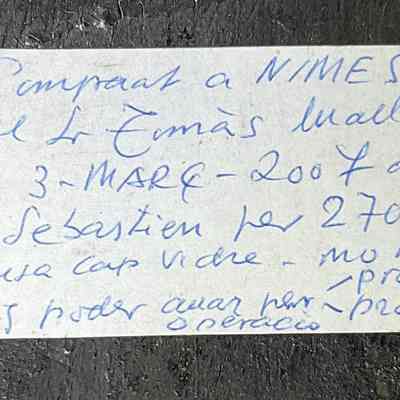 Compraat a NIMES
Sr Tomàs
3-MARÇ-2007
Sebastien per 270
cap vidre - mo
poder anar per
operació